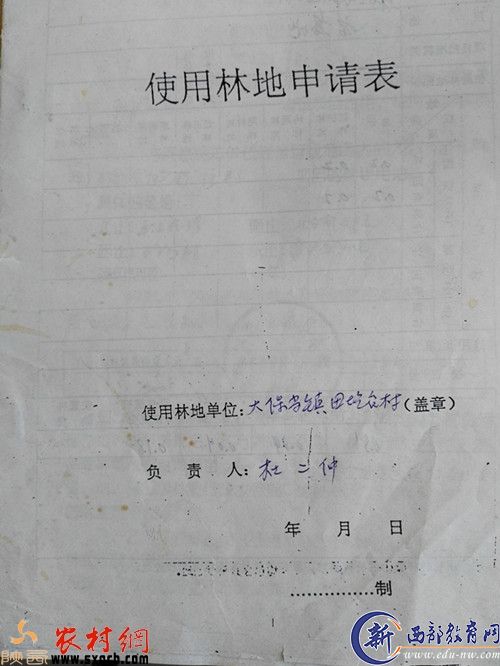 使用林地申请表
使用林地单位:大保当镇田圪台村(盖章)
负责人:杜二仲
年月日
……………制
陕西农村網
www.sxncb.com
新西部教育网
www.edu-nw.com